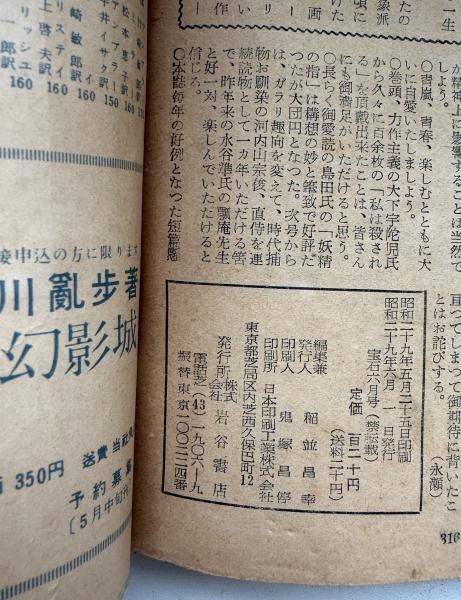 が精神上に影響することは当然で
しよう。
○青嵐、青春、楽しむとともに大
いに自愛いたしましよう。
○巻頭、力作主義の大下宇陀児氏
から久々に百余枚の「私は殺され
る」を頂戴出来たことは、皆さん
にも御満足がいただけると思う。
○長らく御愛読の島田氏の「妖精
の指」は構想の妙と筆致で好評だ
つたが大団円となつた。次号から
は、ガラリ趣向を変えて、時代捕
物お馴染の河内山宗俊、直侍を連
続読物として一カ年いただける筈
で、昨年来の水谷準氏の瓢庵先生
と好一対、楽しんでいただけると
信じる。
○本誌毎年の好例となつた短篇懸
耳つてしまつて御期待に背いたこ
とはお詫びする。
(永瀬)
昭和二十九年五月二十五日印刷
昭和二十九年六月一日発行
宝石六月号(禁転載)
定価 百二十円
(送料二十円)
編集兼
発行人 稲並昌幸
印刷人 鬼塚昌停
印刷所 日本印刷工業株式会社
東京都芝局区内芝西久保巴町12
発行所 株式会社 岩谷書店
電話芝(43)一九〇六—九
振替東京一〇〇三二四番
316
接申込の方に限ります
川亂歩著
幻影城
350円 送費 当社
予約募
〔5月中旬刊